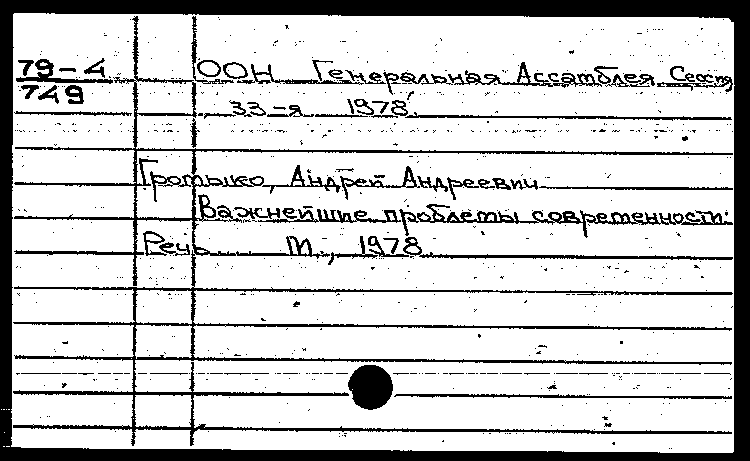 79-4 ООН Генеральная Ассамблея Сессия
749 33-я 1978.
Громыко, Андрей Андреевич
Важнейшие проблемы современности:
Речь М., 1978.